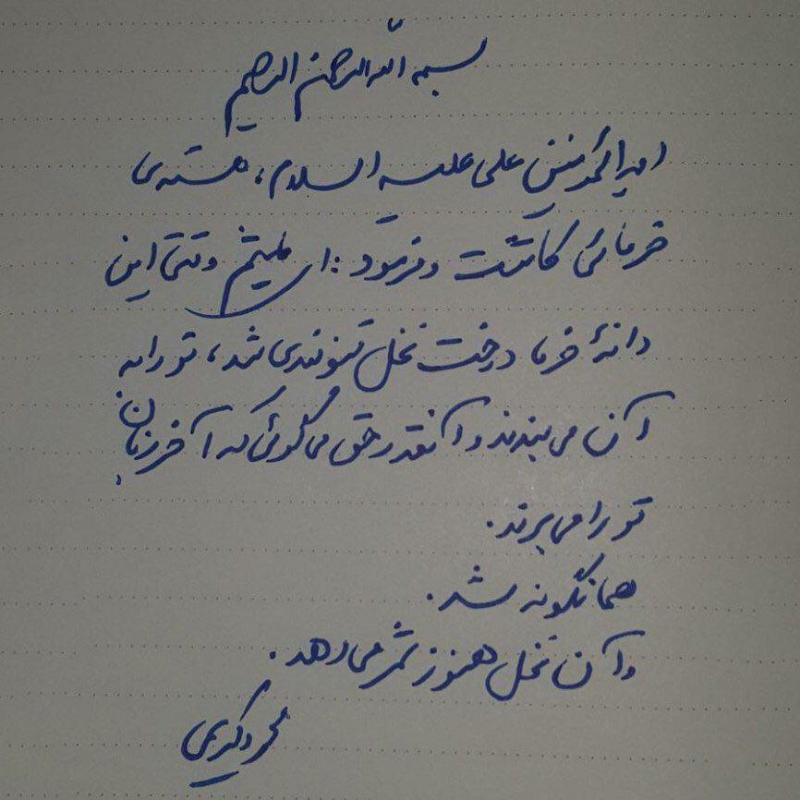 بسم الله الرحمن الرحیم
امیرالمؤمنین علی علیه السلام، هسته‌ی
خرمائی کاشت و فرمود: ای میثم وقتی این
دانهٔ خرما درخت نخل تنومندی شد، تو را به
آن می‌بندند و آنقدر حق می‌گوئی که آخر زبان
تو را می‌برند.
همانگونه شد.
و آن نخل هنوز ثمر می‌دهد.
محمود کریمی